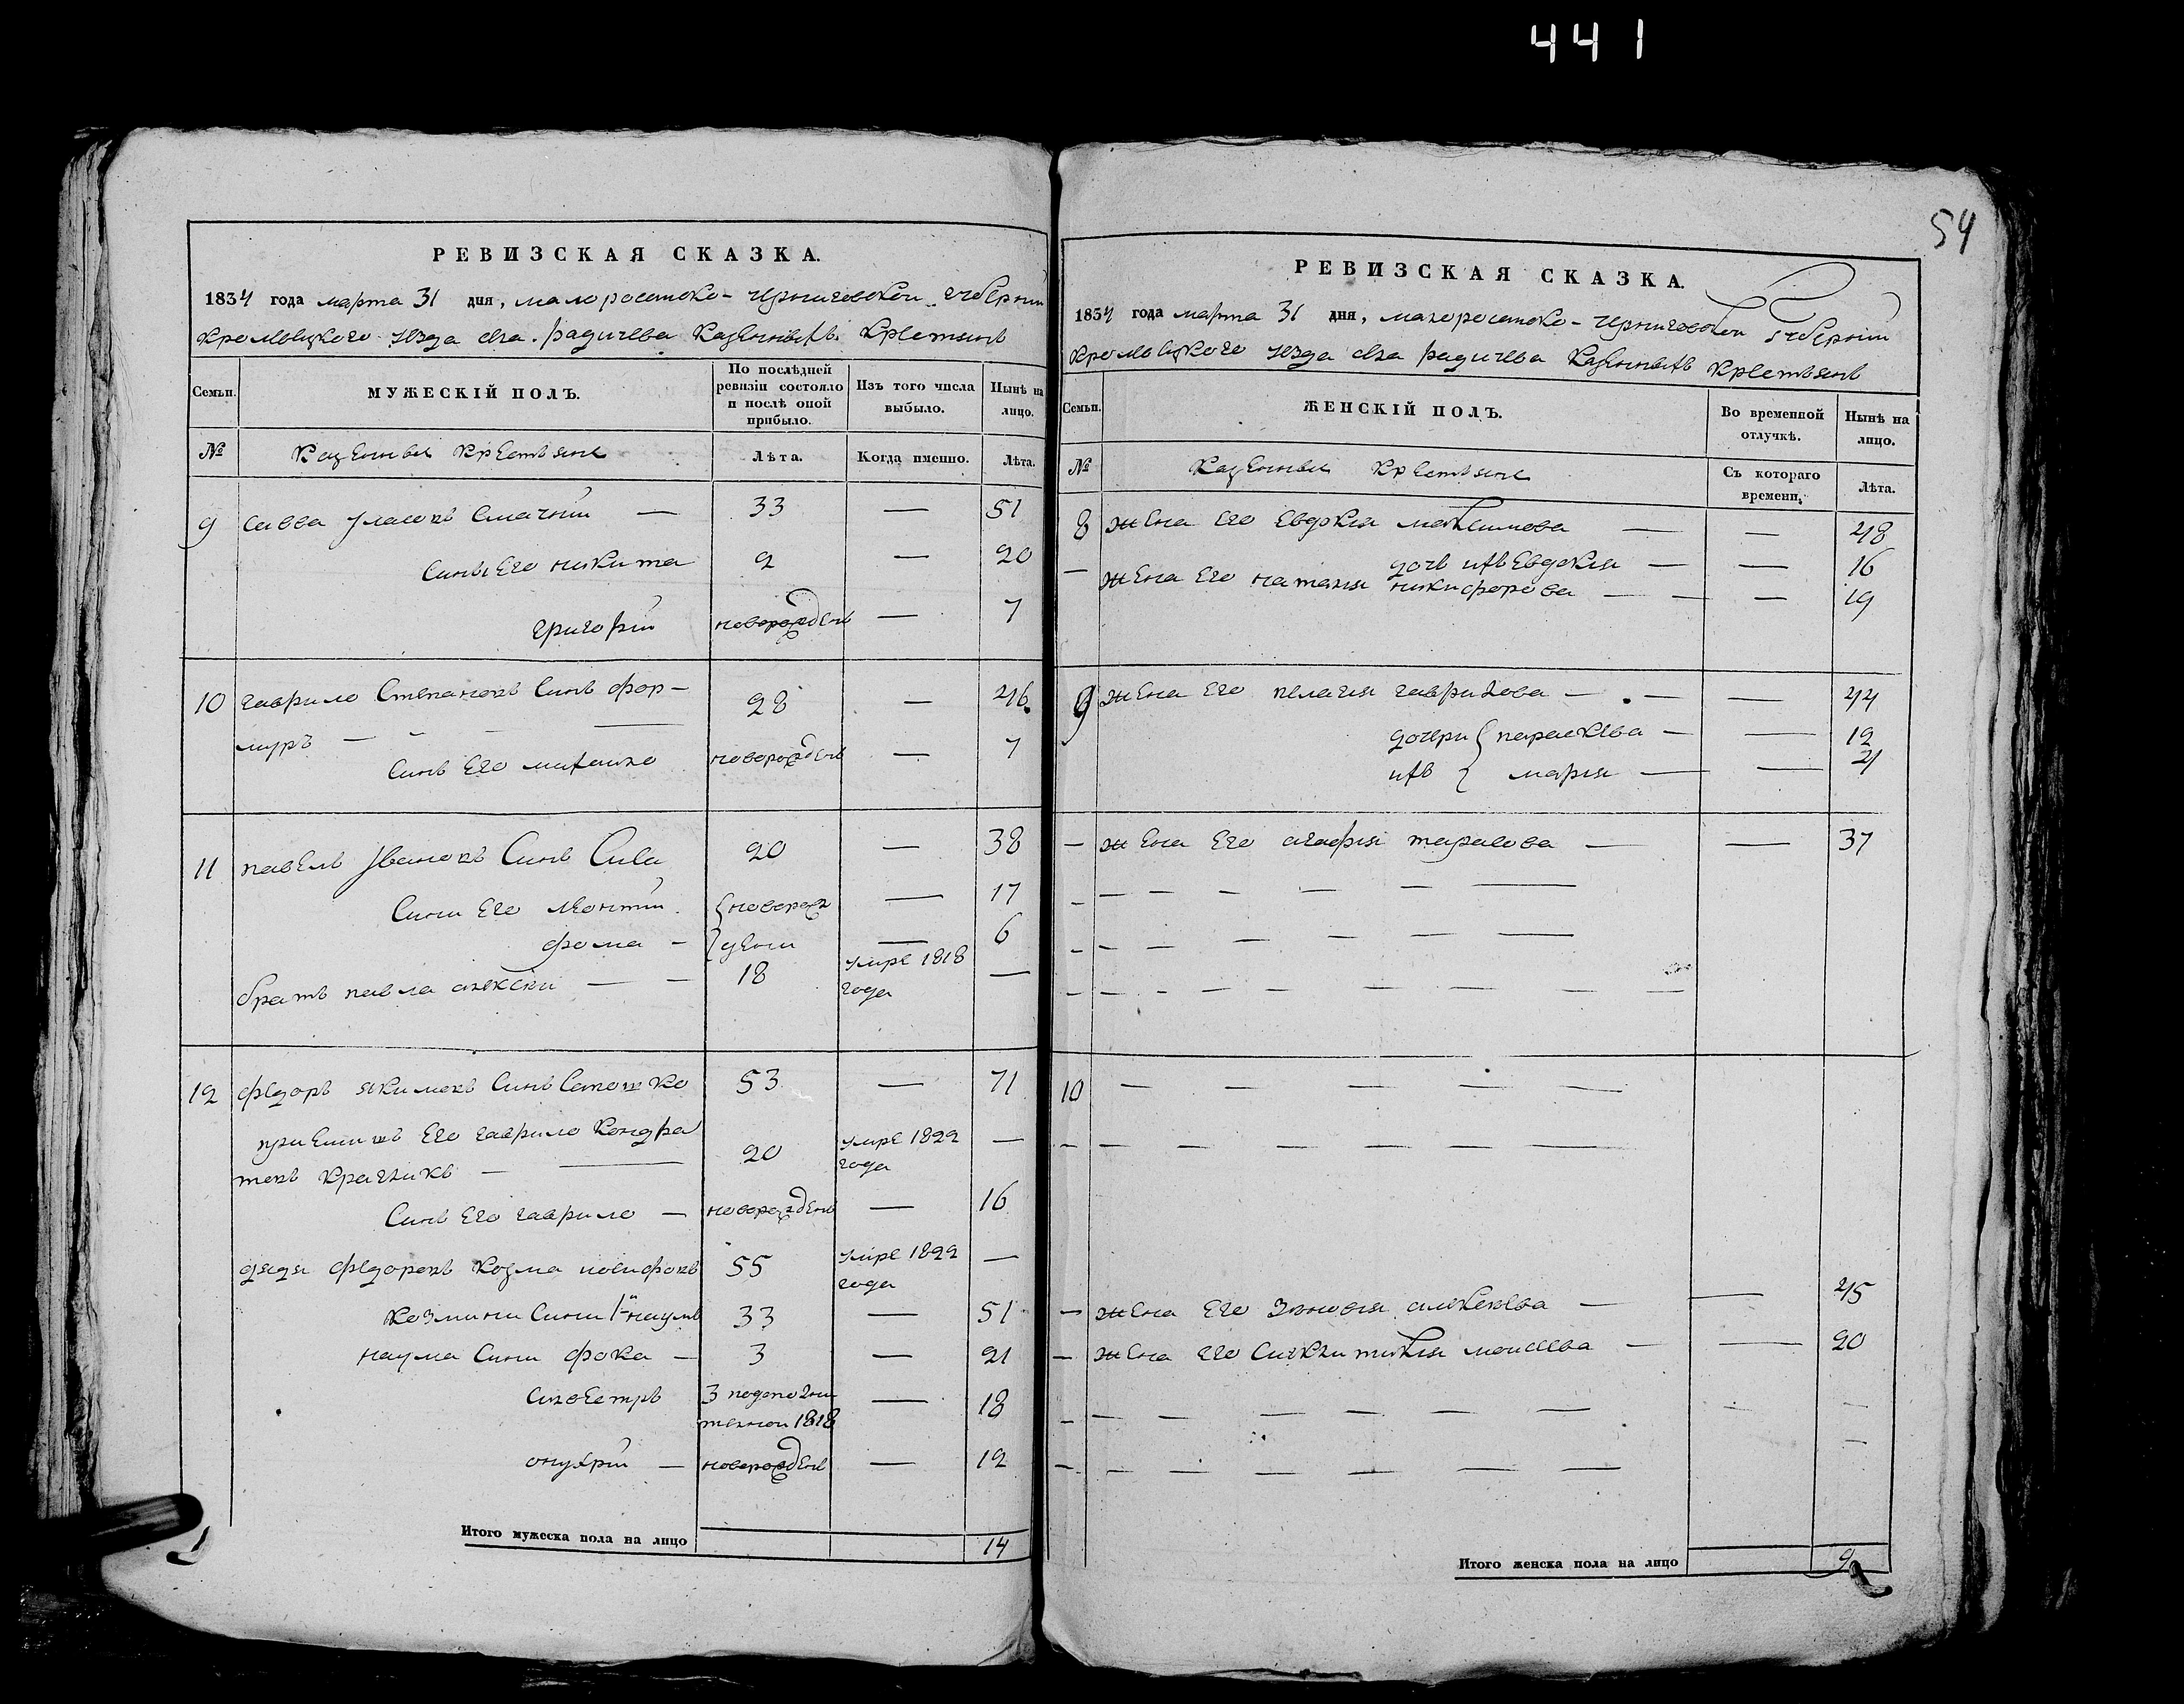 441
54
РЕВИЗСКАЯ СКАЗКА.
1834 года марта 31 дня, малоросийско-черниговской губернии
кролевецкого уезда села радичева казенныхъ крестьянъ
Семьи.
МУЖЕСКІЙ ПОЛЪ.
По послѣдней ревизіи состояло и послѣ оной прибыло.
Изъ того числа выбыло.
Нынѣ на лицо.
№
казенные крестьяне
Лѣта.
Когда именно.
Лѣта.
9 савва уласовъ смачний — 33 — 51
синъ его никита 2 — 20
григорий новорожденъ — 7
10 гаврило степановъ синъ фор- 28 — 46
муръ —
синъ его михайло новорожденъ — 7
11 павелъ ивановъ синъ сила 20 — 38
сини его леонтий новорож — 17
фома — дени — 6
братъ павла алексей — 18 умре 1818 года —
12 федоръ якимовъ синъ сотошко 53 — 71
приемишъ его гаврило кондра
товъ — 20 умре 1822 года —
синъ его гаврило — новорожденъ — 16
дядя федоровъ козма иосифовъ 55 умре 1822 года —
козмини сини 1й наумъ 33 — 51
наума сини фока — 3 — 21
силвестръ 3 подополни
телной 1818 — 18
онуфрий — новорожденъ — 12
Итого мужеска пола на лицо 14
РЕВИЗСКАЯ СКАЗКА.
1834 года марта 31 дня, малоросийско-черниговской губернии
кролевецкого уезда села радичева казенныхъ крестьянъ
Семьи.
ЖЕНСКІЙ ПОЛЪ.
Во временной отлучкѣ.
Нынѣ на лицо.
№
казенные крестьяне
Съ котораго времени.
Лѣта.
8 жена его евдокия максимова — — 48
дочь ихъ евдокия — — 16
— жена его наталия никифорова — — 19
9 жена его пелагия гаврилова — — 44
дочери параскева — — 12
ихъ мария — — 4
— жена его агафия тарасова — — 37
10 — — — — —
— жена его зиновия алексеева — — 45
— жена его моисеева — — 20
Итого женска пола на лицо 9